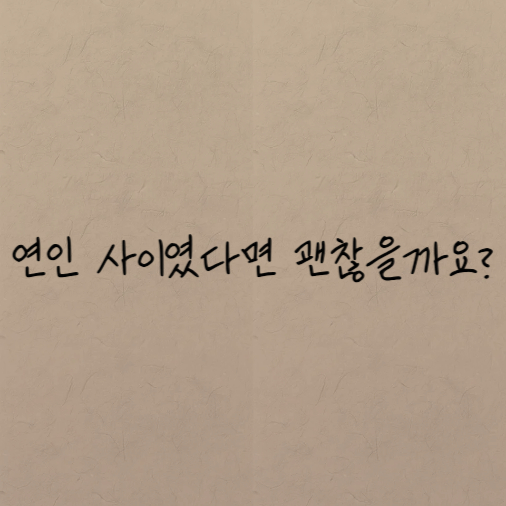 연인 사이였다면 괜찮을까요?